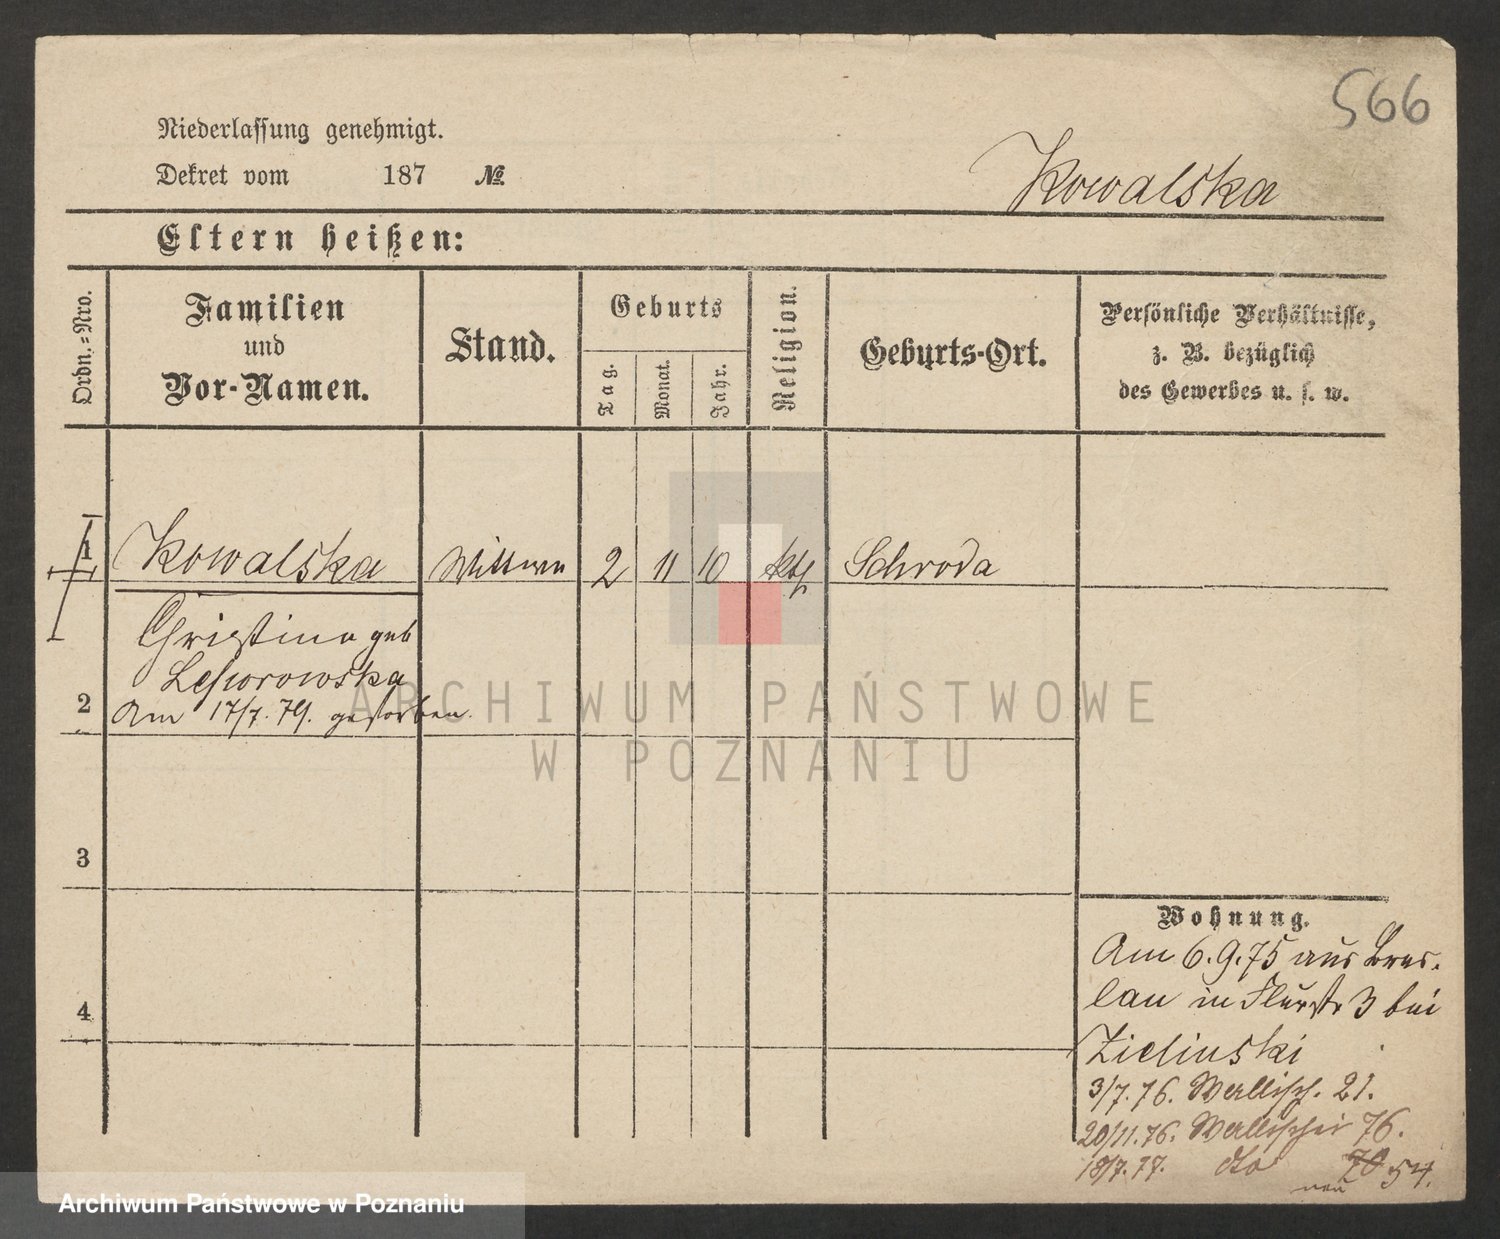 566
Niederlassung genehmigt.
Dekret vom 187 №
Kowalska
Eltern heißen:
Ordn.=Nro.
Familien
und
Vor-Namen.
Stand.
Geburts
Tag.
Monat.
Jahr.
Religion.
Geburts-Ort.
Persönliche Verhältnisse,
z. B. bezüglich
des Gewerbes u. s. w.
1 Kowalska Wittwe 2 11 10 kth Schroda
Christina geb
2
Am 17/7. 79. gestorben.
3
4
Wohnung.
Am 6.9.75 aus Bres-
lau in Flurstr 3 bei
Zielinski
3/7. 76. Wallisch. 21.
20/11. 76. Wallischei 76.
18/7. 77. dto 70 54.
neu
ARCHIWUM PAŃSTWOWE
W POZNANIU
Archiwum Państwowe w Poznaniu